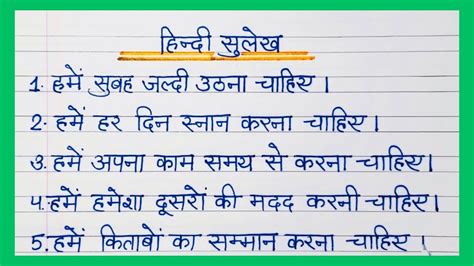 हिन्दी सुलेख
1. हमें सुबह जल्दी उठना चाहिए।
2. हमें हर दिन स्नान करना चाहिए।
3. हमें अपना काम समय से करना चाहिए।
4. हमें हमेशा दूसरों की मदद करनी चाहिए।
5. हमें किताबों का सम्मान करना चाहिए।